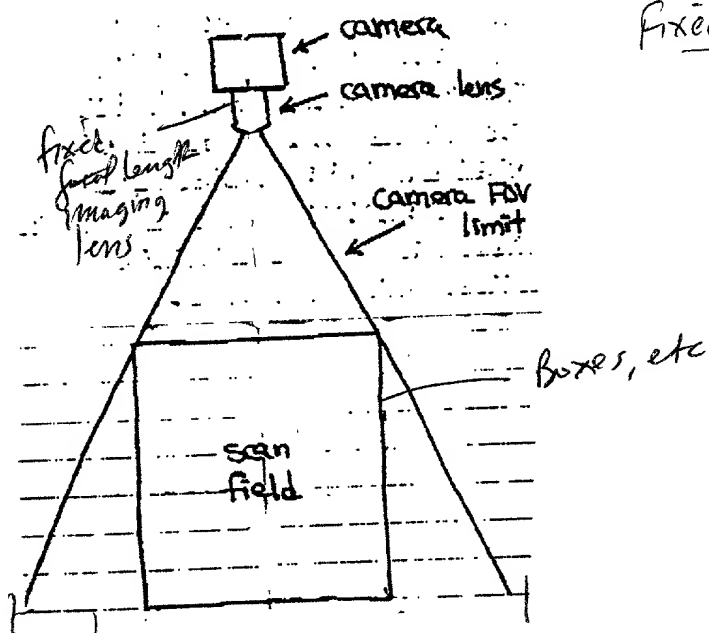 camera
camera lens
fixed
focal length
imaging
lens.
camera FOV
limit
Boxes, etc
scan
field